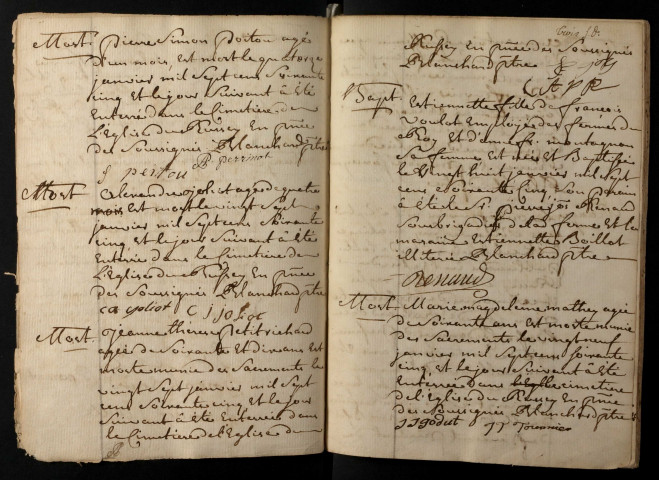 Mort. Pierre Simon Poitou agé
d'un mois, est mort le quatorze
janvier mil Sept cens Soixante
cinq et le jour Suivant à Eté
Enterré dans le Cimetiere de
L'Eglise du Russey En pnce
des Soussignés Blanchard ptre
Mort
Alexandre joliot agé de quatre
mois est mort le vingt Sept
janvier mil Sept cens Soixante
cinq et le jour Suivant à Eté
Enterré dans le Cimetiere de
L'Eglise du Russey En pnce
des Soussignés Blanchard ptre
joliot C J joliot
Mort. jeanne therese Petitrichard
agée de Soixante Et dix ans est
morte munie des Sacremens le
vingt Sept janvier mil Sept
cens Soixante cinq et le jour
Suivant à Eté Enterrée dans
le Cimetiere de L'Eglise du
cinq
Russey En pnce des Soussignés
Blanchard ptre
Bapt. Estiennette fille de françois
Employé des fermes du
Roy et d'anne montagnon
Sa femme est née et Baptisée
le vingt huit janvier mil Sept
cens Soixante cinq Son parain
à Eté le Sr Renard
Soubrigadier de la ferme et la
maraine Estiennette Boillot
illiterée Blanchard ptre
Renard
Mort. Marie magdeleine mathey agée
de Soixante ans est morte munie
des Sacremens le vingt neuf
janvier mil Sept cens Soixante
cinq, et le jour Suivant à Eté
Enterrée dans le cimetiere
de L'Eglise du Russey En pnce
des Soussignés Blanchard ptre